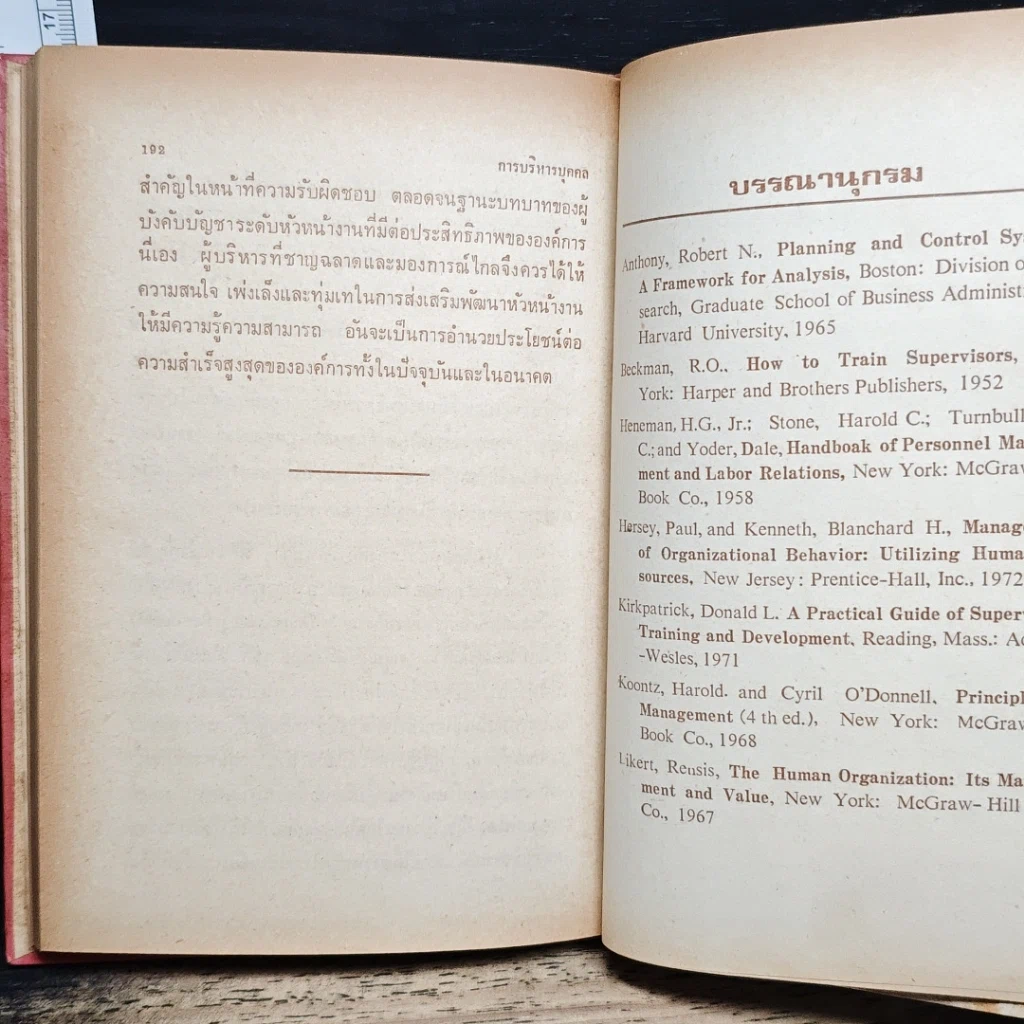 17
192
การบริหารบุคคล
สำคัญในหน้าที่ความรับผิดชอบ ตลอดจนฐานะบทบาทของผู้
บังคับบัญชาระดับหัวหน้างานที่มีต่อประสิทธิภาพขององค์การ
นี่เอง ผู้บริหารที่ชาญฉลาดและมองการณ์ไกลจึงควรได้ให้
ความสนใจ เพ่งเล็งและทุ่มเทในการส่งเสริมพัฒนาหัวหน้างาน
ให้มีความรู้ความสามารถ อันจะเป็นการอำนวยประโยชน์ต่อ
ความสำเร็จสูงสุดขององค์การทั้งในปัจจุบันและในอนาคต
บรรณานุกรม
Anthony, Robert N., Planning and Control Sy
A Framework for Analysis, Boston: Division o
search, Graduate School of Business Administ
Harvard University, 1965
Beckman, R.O., How to Train Supervisors,
York: Harper and Brothers Publishers, 1952
Heneman, H.G., Jr.; Stone, Harold C.; Turnbull
C.; and Yoder, Dale, Handboak of Personnel Ma
ment and Labor Relations, New York: McGraw
Book Co., 1958
Hersey, Paul, and Kenneth, Blanchard H., Manage
of Organizational Behavior: Utilizing Huma
sources, New Jersey: Prentice-Hall, Inc., 1972
Kirkpatrick, Donald L. A Practical Guide of Super
Training and Development, Reading, Mass.: Ad
-Wesles, 1971
Koontz, Harold. and Cyril O'Donnell, Principl
Management (4 th ed.), New York: McGraw
Book Co., 1968
Likert, Rensis, The Human Organization: Its Ma
ment and Value, New York: McGraw-Hill
Co., 1967